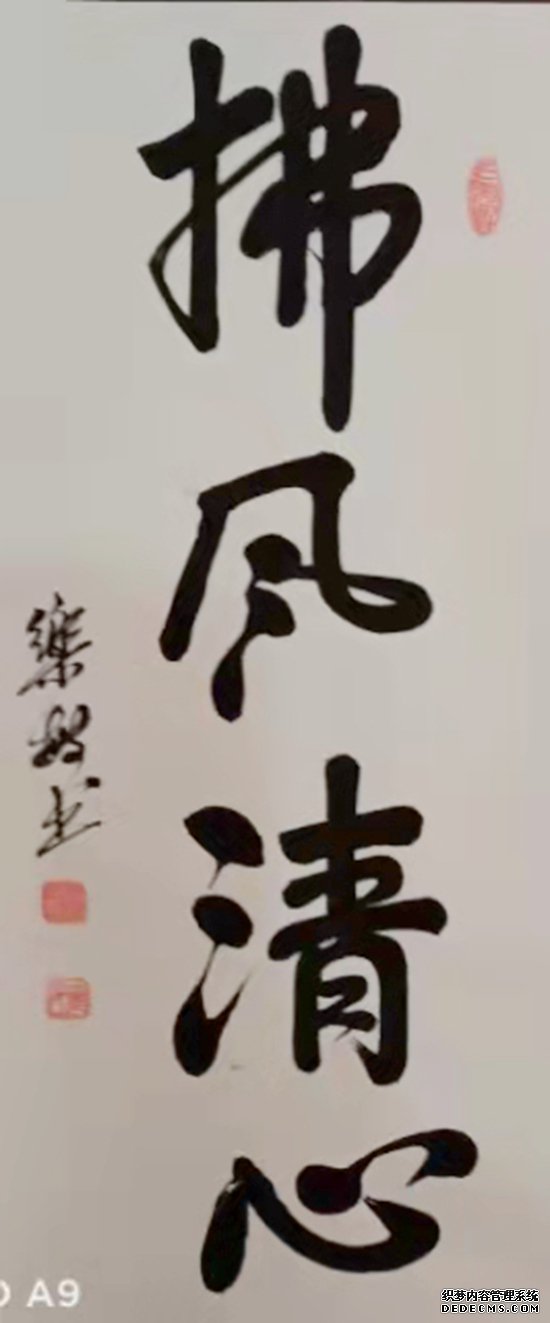 拂风清心
樂敏书
O A9
织梦内容管理系统
DEDECMS.COM